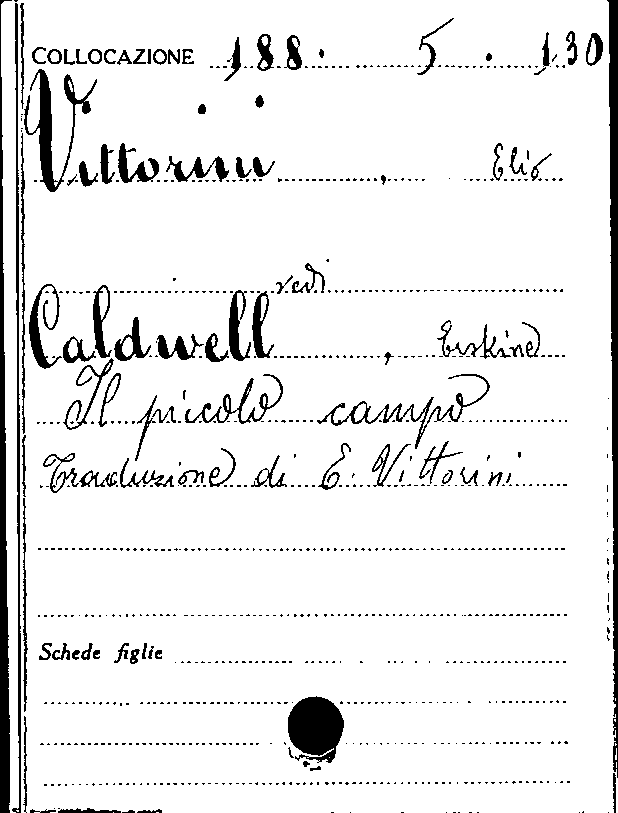 COLLOCAZIONE 188. 5. 130
Vittorini, Elio
vedi
Caldwell, Erskine
Il piccolo campo
Traduzione di E. Vittorini
Schede figlie